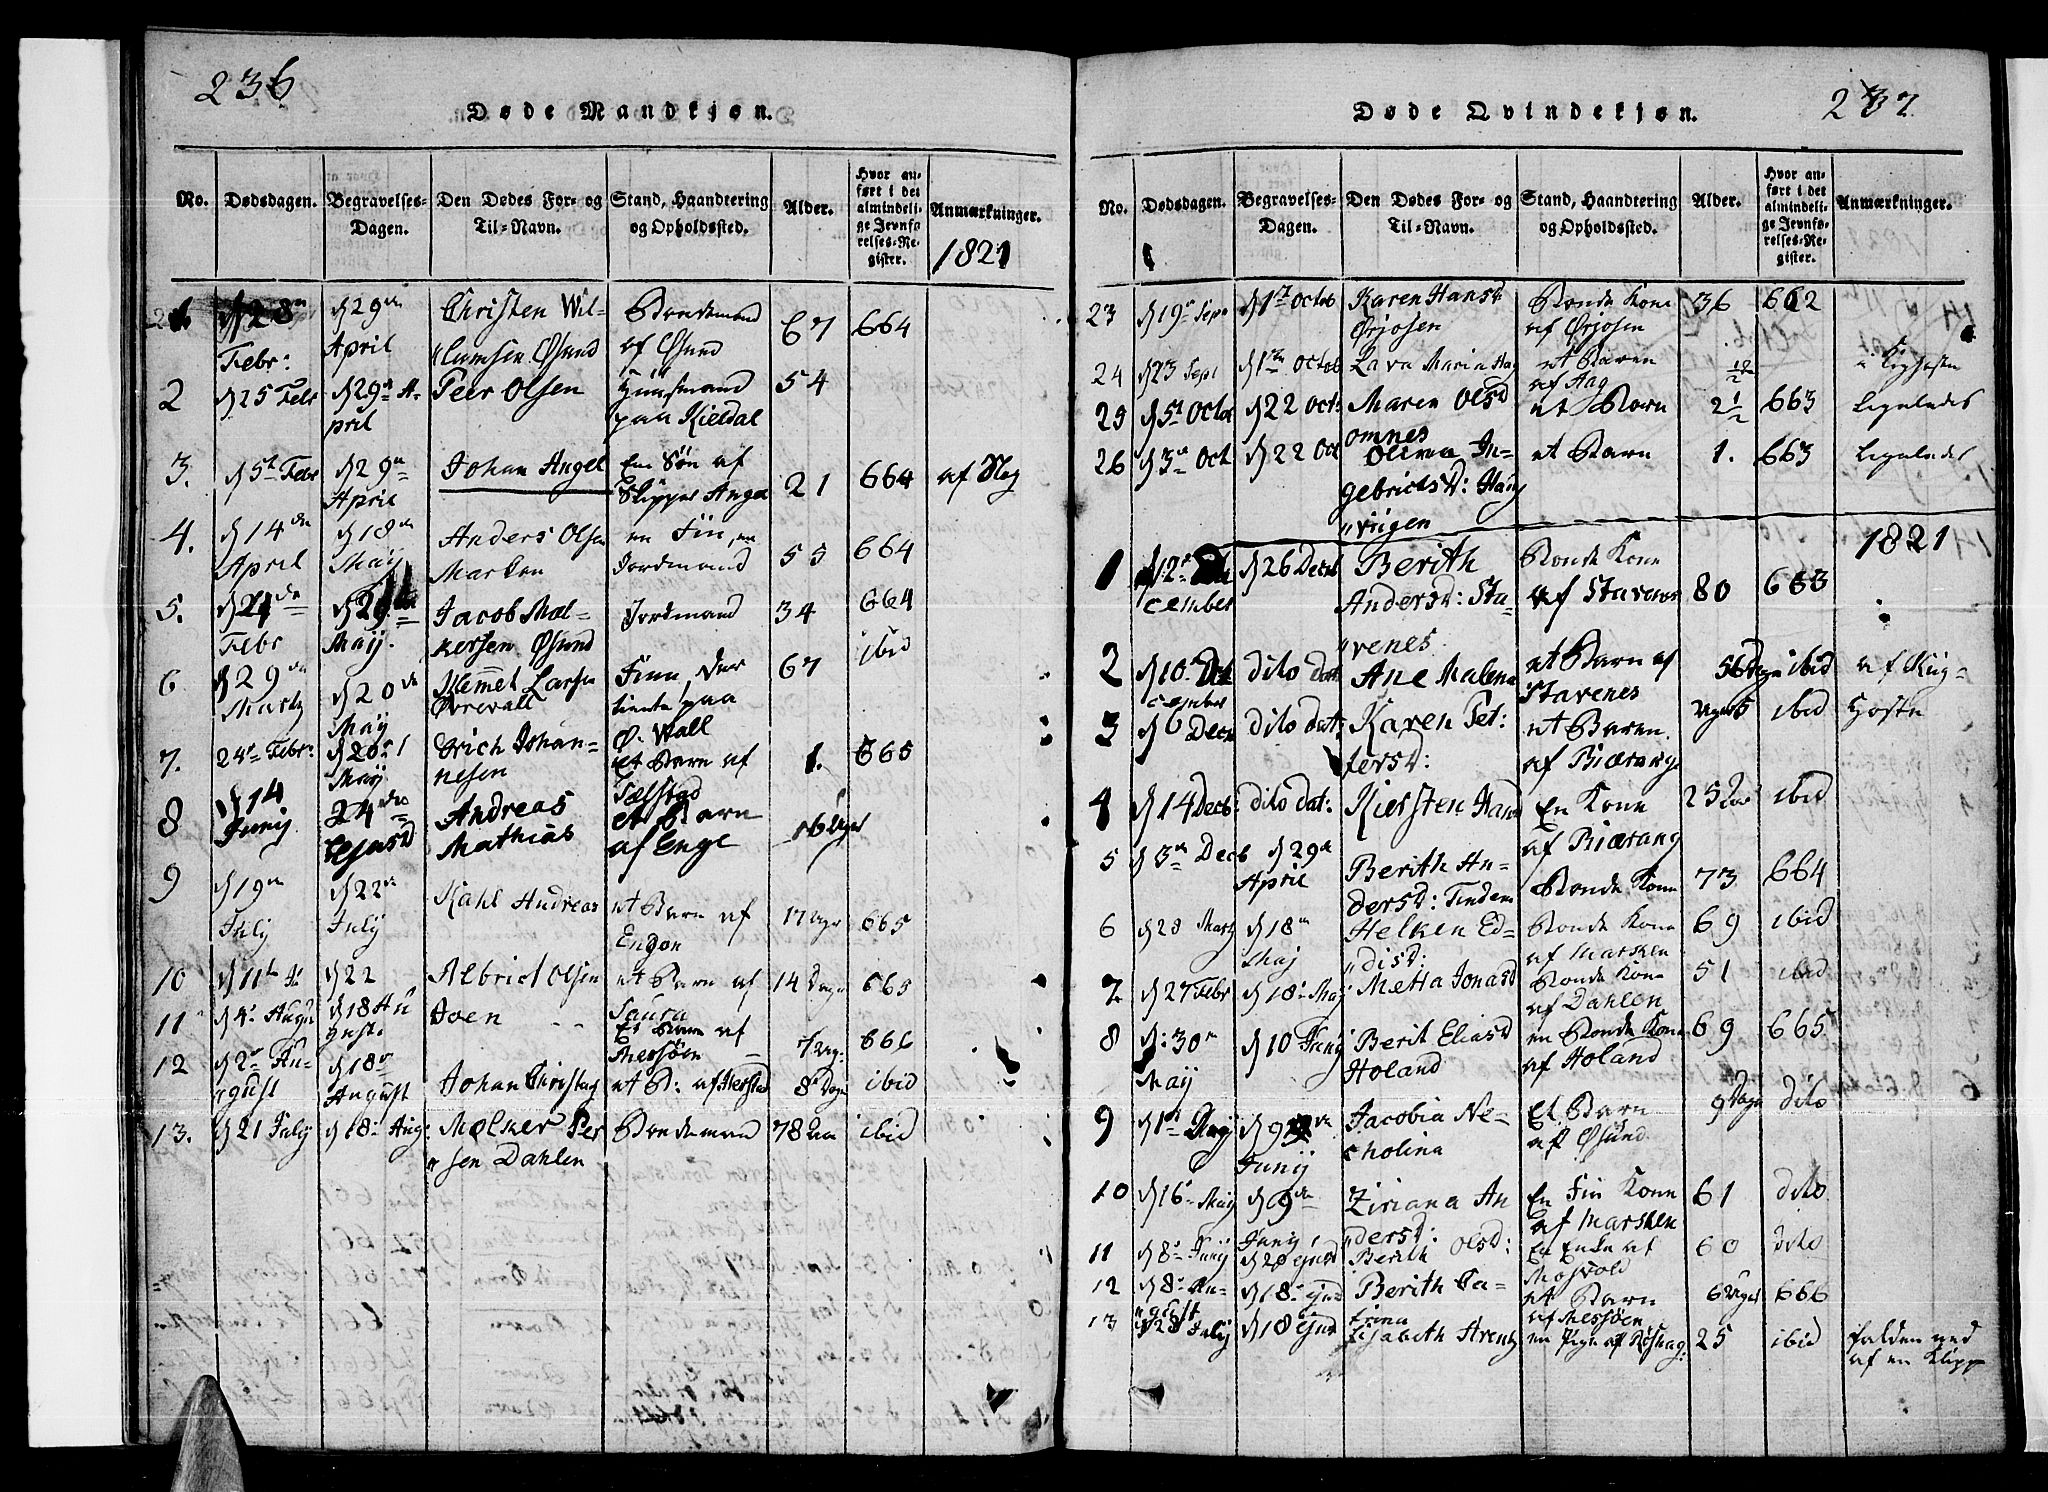 236
Døde Mandkjøn.
No.
Dødsdagen.
Begravelses-
Dagen.
Den Dødes For- og
Til-Navn.
Stand, Haandtering
og Opholdssted.
Alder.
Hvor an-
ført i det
almindeli-
ge Jevnfø-
relses-Re-
gister.
Anmærkninger.
1821
28
Febr:
29
April
Christen Wil-
Øsund
Bondemand
af Øsund
67
664
2
25 Febr
29 A-
pril
Peer Olsen
Huusmand
paa Kieldal
54
3.
5 Febr
29
April
Johan Angel
En Søn af
Skipper Angel
21
664
4.
14
April
18
May
Anders Olsen
Marken
en Fin, en
Jordmand
55
664
5.
Febr
May.
Jacob Mel-
kersen Øsund
Jordmand
34
664
ibid
6
29
Martz
20
May
Larsen
Øvrevall
Finn, der
tiente paa
Ø. Wall
67
7.
24 Febr:
20
May
Erich Johan-
nesen
Et Barn af
1.
665
8
14
Junij
24
Andreas
Mathias
et Barn
af Enge
16 Uger
9
19
July
22
July
Kahl Andreas
et Barn af
Engen
17 Uger
665
10
22
Albrict Olsen
et Barn af
Saura
14 Dage
665
11
4 Augu
18 Au
gusti
Joen
Et Barn af
Messøen
7 Ug:
666
12
2 Au-
gust
18
August
Johan Christ
et B: af
8 Dage
ibid
13.
21 July
18 Aug:
Melker Per
sen Dahlen
Bondemand
78
ibid
237
Døde Qvindekjøn.
No.
Dødsdagen.
Begravelses-
Dagen.
Den Dødes For- og
Til-Navn.
Stand, Haandtering
og Opholdssted.
Alder.
Hvor an-
ført i det
almindeli-
ge Jevnfø-
relses-Re-
gister.
Anmærkninger.
23
19 Sept
1 Octob
Karen Hansd
Ørjosen
Bonde Kone
af Ørjosen
36
662
24
23 Sept
1 Octob
Maria Aag
et Barn
af Aag
i Kighoste
25
5 Octo
22 Oct:
Maren Olsd
omnes
et Barn
2 1/2
663
Ligeledes
26
3 Oct
22 Oct
Olina In-
gebrictsd: Haug
et Barn
1.
663
Ligeledes
1821
1
12 De
cember
26 Decb
Berith
Andersd: Sta-
venes
Bonde Kone
af Stavenes
80
663
2
10 De
cember
dito dat:
Ane Malena
et Barn af
Stavenes
ibid
af Kiig-
Hoste
3
6 Dec
dito dat:
Karen Pet:
tersd:
et Barn
af Biærang
Uger 5
ibid
4
14 Decb:
dito dat:
Kiersten Hans
En Kone
af Biærang
25
ibid
5
3 Decb
29
April
Berith An-
dersd:
Bonde Kone
73
664
6
28 Martz
18
Maj
Helken Ed-
disd:
Bonde Kone
af Marsken
69
ibid
7
27 Febr
18 May
Metta Jonasd
Bonde Kone
af Dahlen
51
ibid
8
30
May
10 Junij
Berit Eliasd
Holand
en Bonde Kone
af Holand
69
665
9
1
9
Junij
Jacobia Ne-
cholina
Et Barn
af Øsund
9 Dage
dito
10
16 May
9
Junij
Ziriana An
dersd:
En Fin Kone
af Marsken
61
dito
11
8 Junij
20
Berith Olsd:
En Enke af
Mosvold
60
dito
12
8 Au-
gust
18
Berith Ca-
trina
et Barn
af Messøen
6 Uger
666
13
28 July
18
Elisabeth Arentz
en Pige af Røshag:
25
ibid
falden ned
af en Klippe